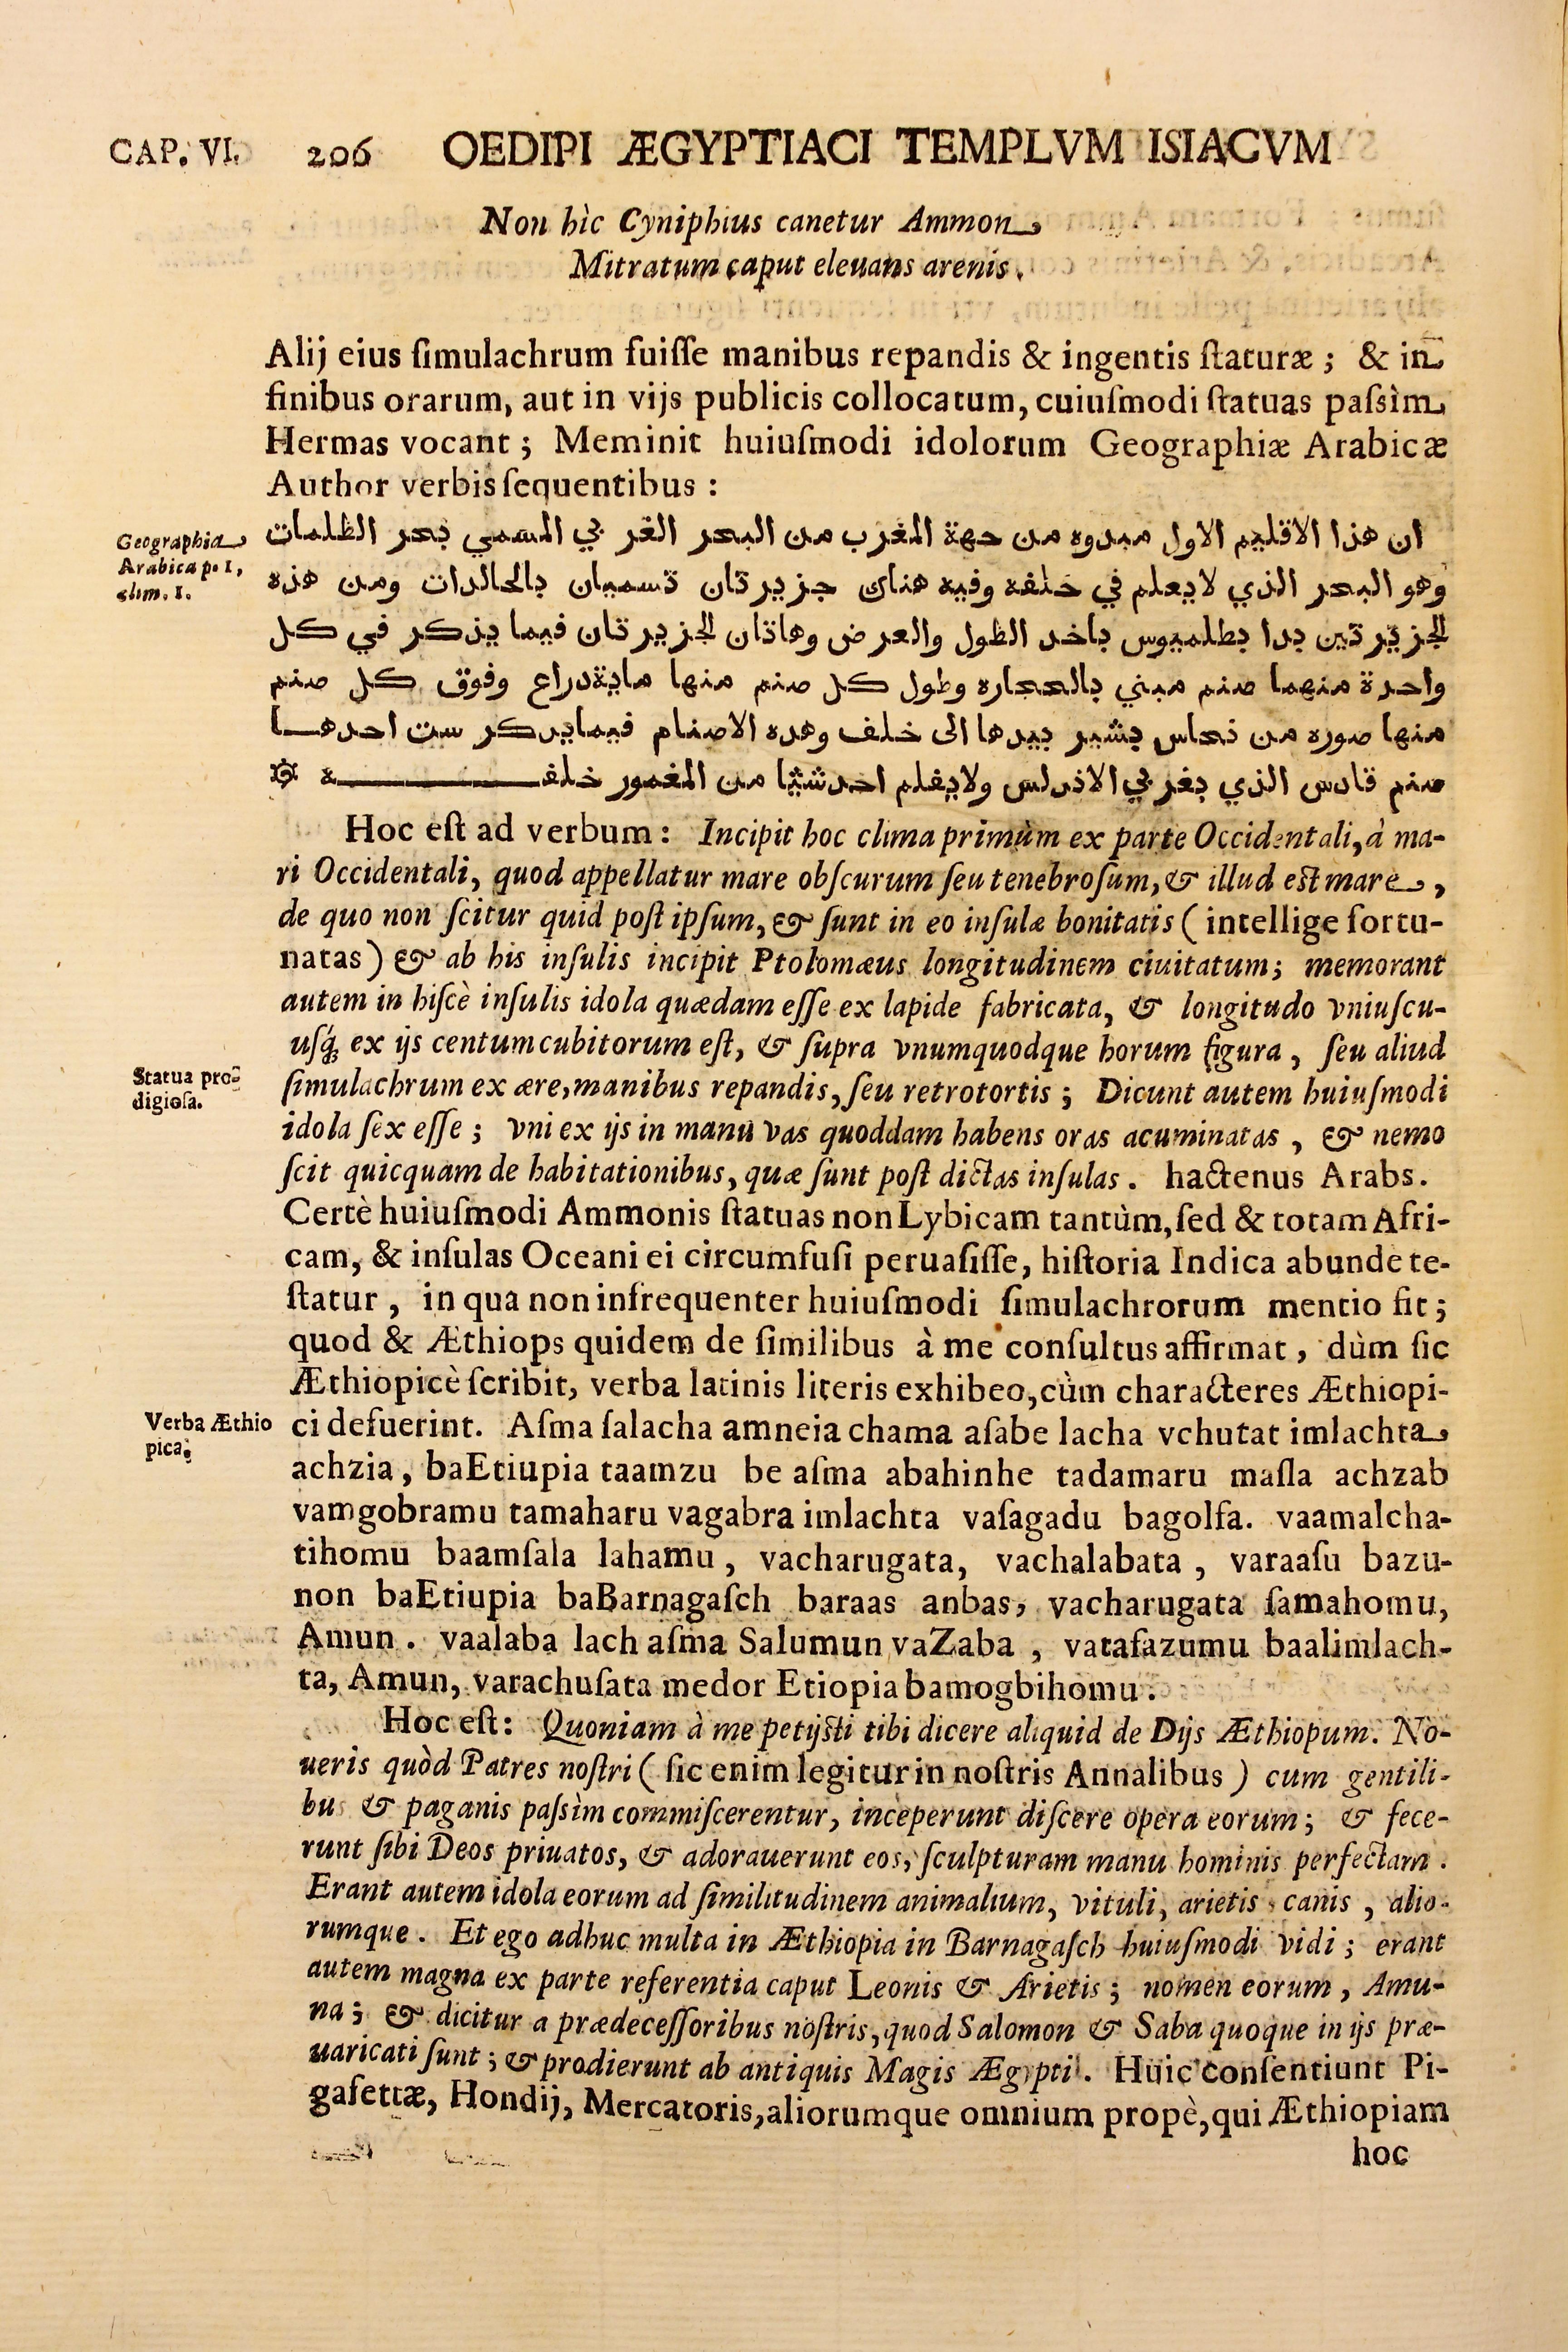 CAP. VI. 206 OEDIPI ÆGYPTIACI TEMPLVM ISIACVM
Non hìc Cyniphius canetur Ammon
Mitratum caput eleuans arenis.
Alij eius ſimulachrum fuiſſe manibus repandis & ingentis ſtaturæ; & in
finibus orarum, aut in vijs publicis collocatum, cuiuſmodi ſtatuas paſsìm
Hermas vocant; Meminit huiuſmodi idolorum Geographiæ Arabicæ
Author verbis ſequentibus:
Geographia
Arabica p. 1,
clim. 1.
ان هذا الاقليم الاول مبدوه من جهة المغرب من البحر الغربي المسمي بحر الظلمات
وهو البحر الذي لايعلم في خلفه وفيه هناك جزيرتان تسميان بالحالدات ومن هذه
الجزيرتين بدا بطلميوس باخد الطول والعرض وهاتان الجزيرتان فيما يذكر في كل
واحدة منهما صنم مبني بالحجاره وطول كل صنم منها ماية دراع وفوق كل صنم
منها صوره من نحاس يشير بيدها الى خلف وهده الاصنام فيما يدكر ست احدها
صنم قادس الذي بغربي الاندلس ولايعلم احد شيا من المغمور خلفه ۞
Hoc eſt ad verbum: Incipit hoc clima primùm ex parte Occidentali, à ma-
ri Occidentali, quod appellatur mare obſcurum ſeu tenebroſum, & illud est mare,
de quo non ſcitur quid poſt ipſum, & ſunt in eo inſulæ bonitatis (intellige fortu-
natas) & ab his inſulis incipit Ptolomæus longitudinem ciuitatum; memorant
autem in hiſcè inſulis idola quædam eſſe ex lapide fabricata, & longitudo vniuſcu-
uſq́; ex ijs centum cubitorum eſt, & ſupra vnumquodque horum figura, ſeu aliud
Statua pro-
digioſa.
ſimulachrum ex ære, manibus repandis, ſeu retrotortis; Dicunt autem huiuſmodi
idola ſex eſſe; vni ex ijs in manu vas quoddam habens oras acuminatas, & nemo
ſcit quicquam de habitationibus, quæ ſunt poſt dictas inſulas. hactenus Arabs.
Certè huiuſmodi Ammonis ſtatuas non Lybicam tantùm, ſed & totam Afri-
cam, & inſulas Oceani ei circumfuſi peruaſiſſe, hiſtoria Indica abunde te-
ſtatur, in qua non infrequenter huiuſmodi ſimulachrorum mentio fit;
quod & Æthiops quidem de ſimilibus à me conſultus affirmat, dùm ſic
Æthiopicè ſcribit, verba latinis literis exhibeo, cùm characteres Æthiopi-
Verba Æthio
pica.
ci defuerint. Aſma ſalacha amneia chama aſabe lacha vchutat imlachta
achzia, baEtiupia taamzu be aſma abahinhe tadamaru maſla achzab
vamgobramu tamaharu vagabra imlachta vaſagadu bagolfa. vaamalcha-
tihomu baamſala lahamu, vacharugata, vachalabata, varaaſu bazu-
non baEtiupia baBarnagaſch baraas anbas, vacharugata ſamahomu,
Amun. vaalaba lach aſma Salumun vaZaba, vatafazumu baalimlach-
ta, Amun, varachuſata medor Etiopia bamogbihomu.
Hoc eſt: Quoniam à me petijſti tibi dicere aliquid de Dijs Æthiopum. No-
ueris quòd Patres noſtri (ſic enim legitur in noſtris Annalibus) cum gentili-
bus & paganis paſsìm commiſcerentur, inceperunt diſcere opera eorum; & fece-
runt ſibi Deos priuatos, & adorauerunt eos, ſculpturam manu hominis perfectam.
Erant autem idola eorum ad ſimilitudinem animalium, vituli, arietis, canis, alio-
rumque. Et ego adhuc multa in Æthiopia in Barnagaſch huiuſmodi vidi; erant
autem magna ex parte referentia caput Leonis & Arietis; nomen eorum, Amu-
na; & dicitur a prædeceſſoribus noſtris, quod Salomon & Saba quoque in ijs præ-
uaricati ſunt; & prodierunt ab antiquis Magis Ægypti. Huic conſentiunt Pi-
gafettæ, Hondij, Mercatoris, aliorumque omnium propè, qui Æthiopiam
hoc